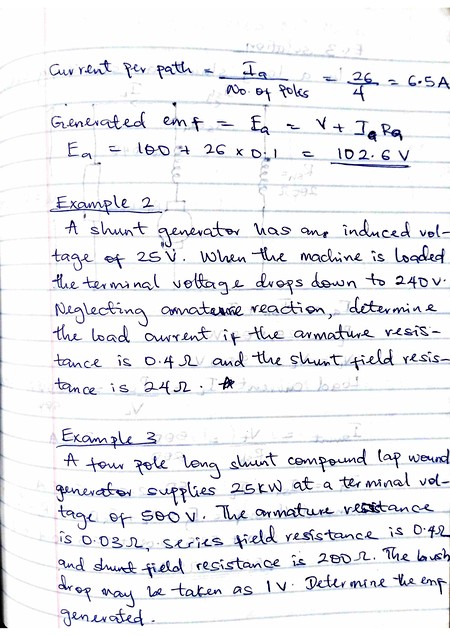 Current per path = Ia / No. of Poles = 26/4 = 6.5A
Generated emf = Ea = V + IaRa
Ea = 100 + 26 × 0.1 = 102.6 V
Example 2
A shunt generator has an induced vol-
tage of 25V. When the machine is loaded
the terminal voltage drops down to 240V.
Neglecting armature reaction, determine
the load current if the armature resis-
tance is 0.4Ω and the shunt field resis-
tance is 24Ω.
Example 3
A four pole long shunt compound lap wound
generator supplies 25kW at a terminal vol-
tage of 500V. The armature resistance
is 0.03Ω, series field resistance is 0.4Ω
and shunt field resistance is 200Ω. The brush
drop may be taken as 1V. Determine the emf
generated.